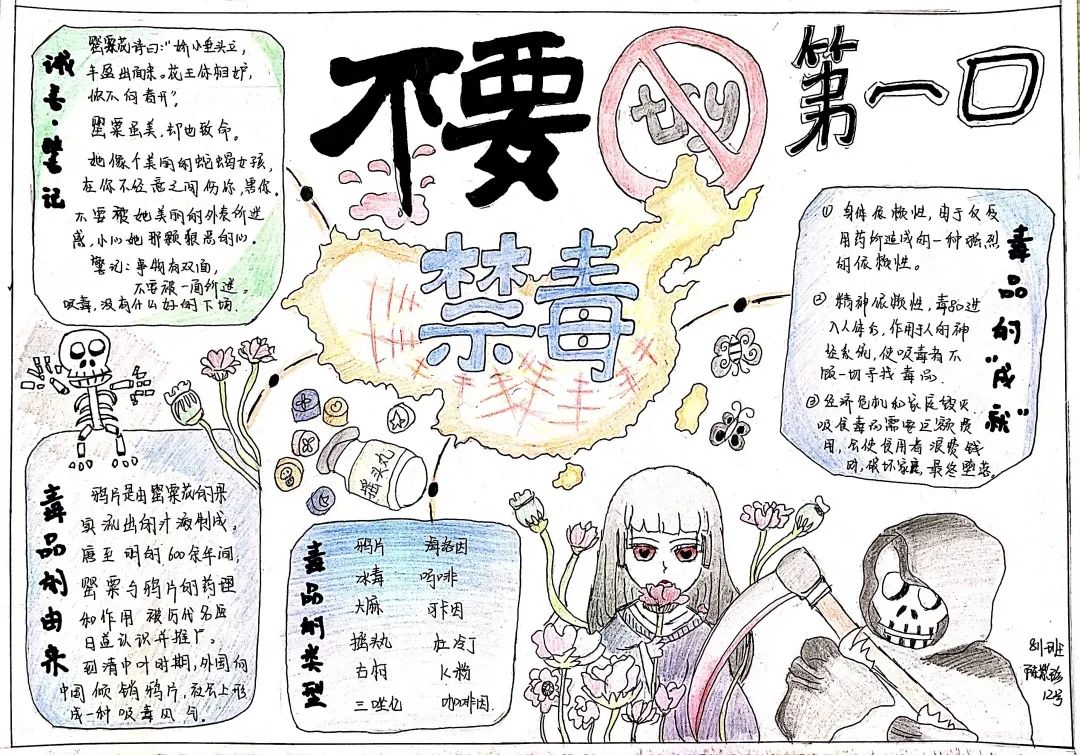 不要
try
第一口
禁毒
诫言·警记
罂粟花诗曰:"娇小垂头立,
丰盈出面来。花王你相妒,
你不向着开",
罂粟虽美,却也致命。
她像个美丽的蛇蝎女孩,
在你不经意之间伤你,害你。
不要被她美丽的外表所迷
惑,小心她那颗狠恶的心。
警记:事物有双面,
不要被一面所迷。
吸毒,没有什么好的下场.
毒品的"成就"
① 身体依赖性,由于反复
用药所造成的一种强烈
的依赖性。
② 精神依赖性,毒品进
入人体后,作用于人的神
经系统,使吸毒者不
顾一切寻找毒品.
③ 经济危机和家庭毁灭.
吸食毒品需要巨额费
用,会使食用者浪费钱
财,破坏家庭,最终堕落。
毒品的由来
鸦片是由罂粟花的果
实流出的汁液制成。
唐至明的600余年间,
罂粟与鸦片的药理
和作用被历代名医
日益认识并推广。
到清中叶时期,外国向
中国倾销鸦片,在名上形
成一种吸毒风气.
摇头丸
毒品的类型
鸦片 海洛因
冰毒 吗啡
大麻 可卡因
摇头丸 杜冷丁
古柯 K粉
三唑仑 咖啡因.
12号